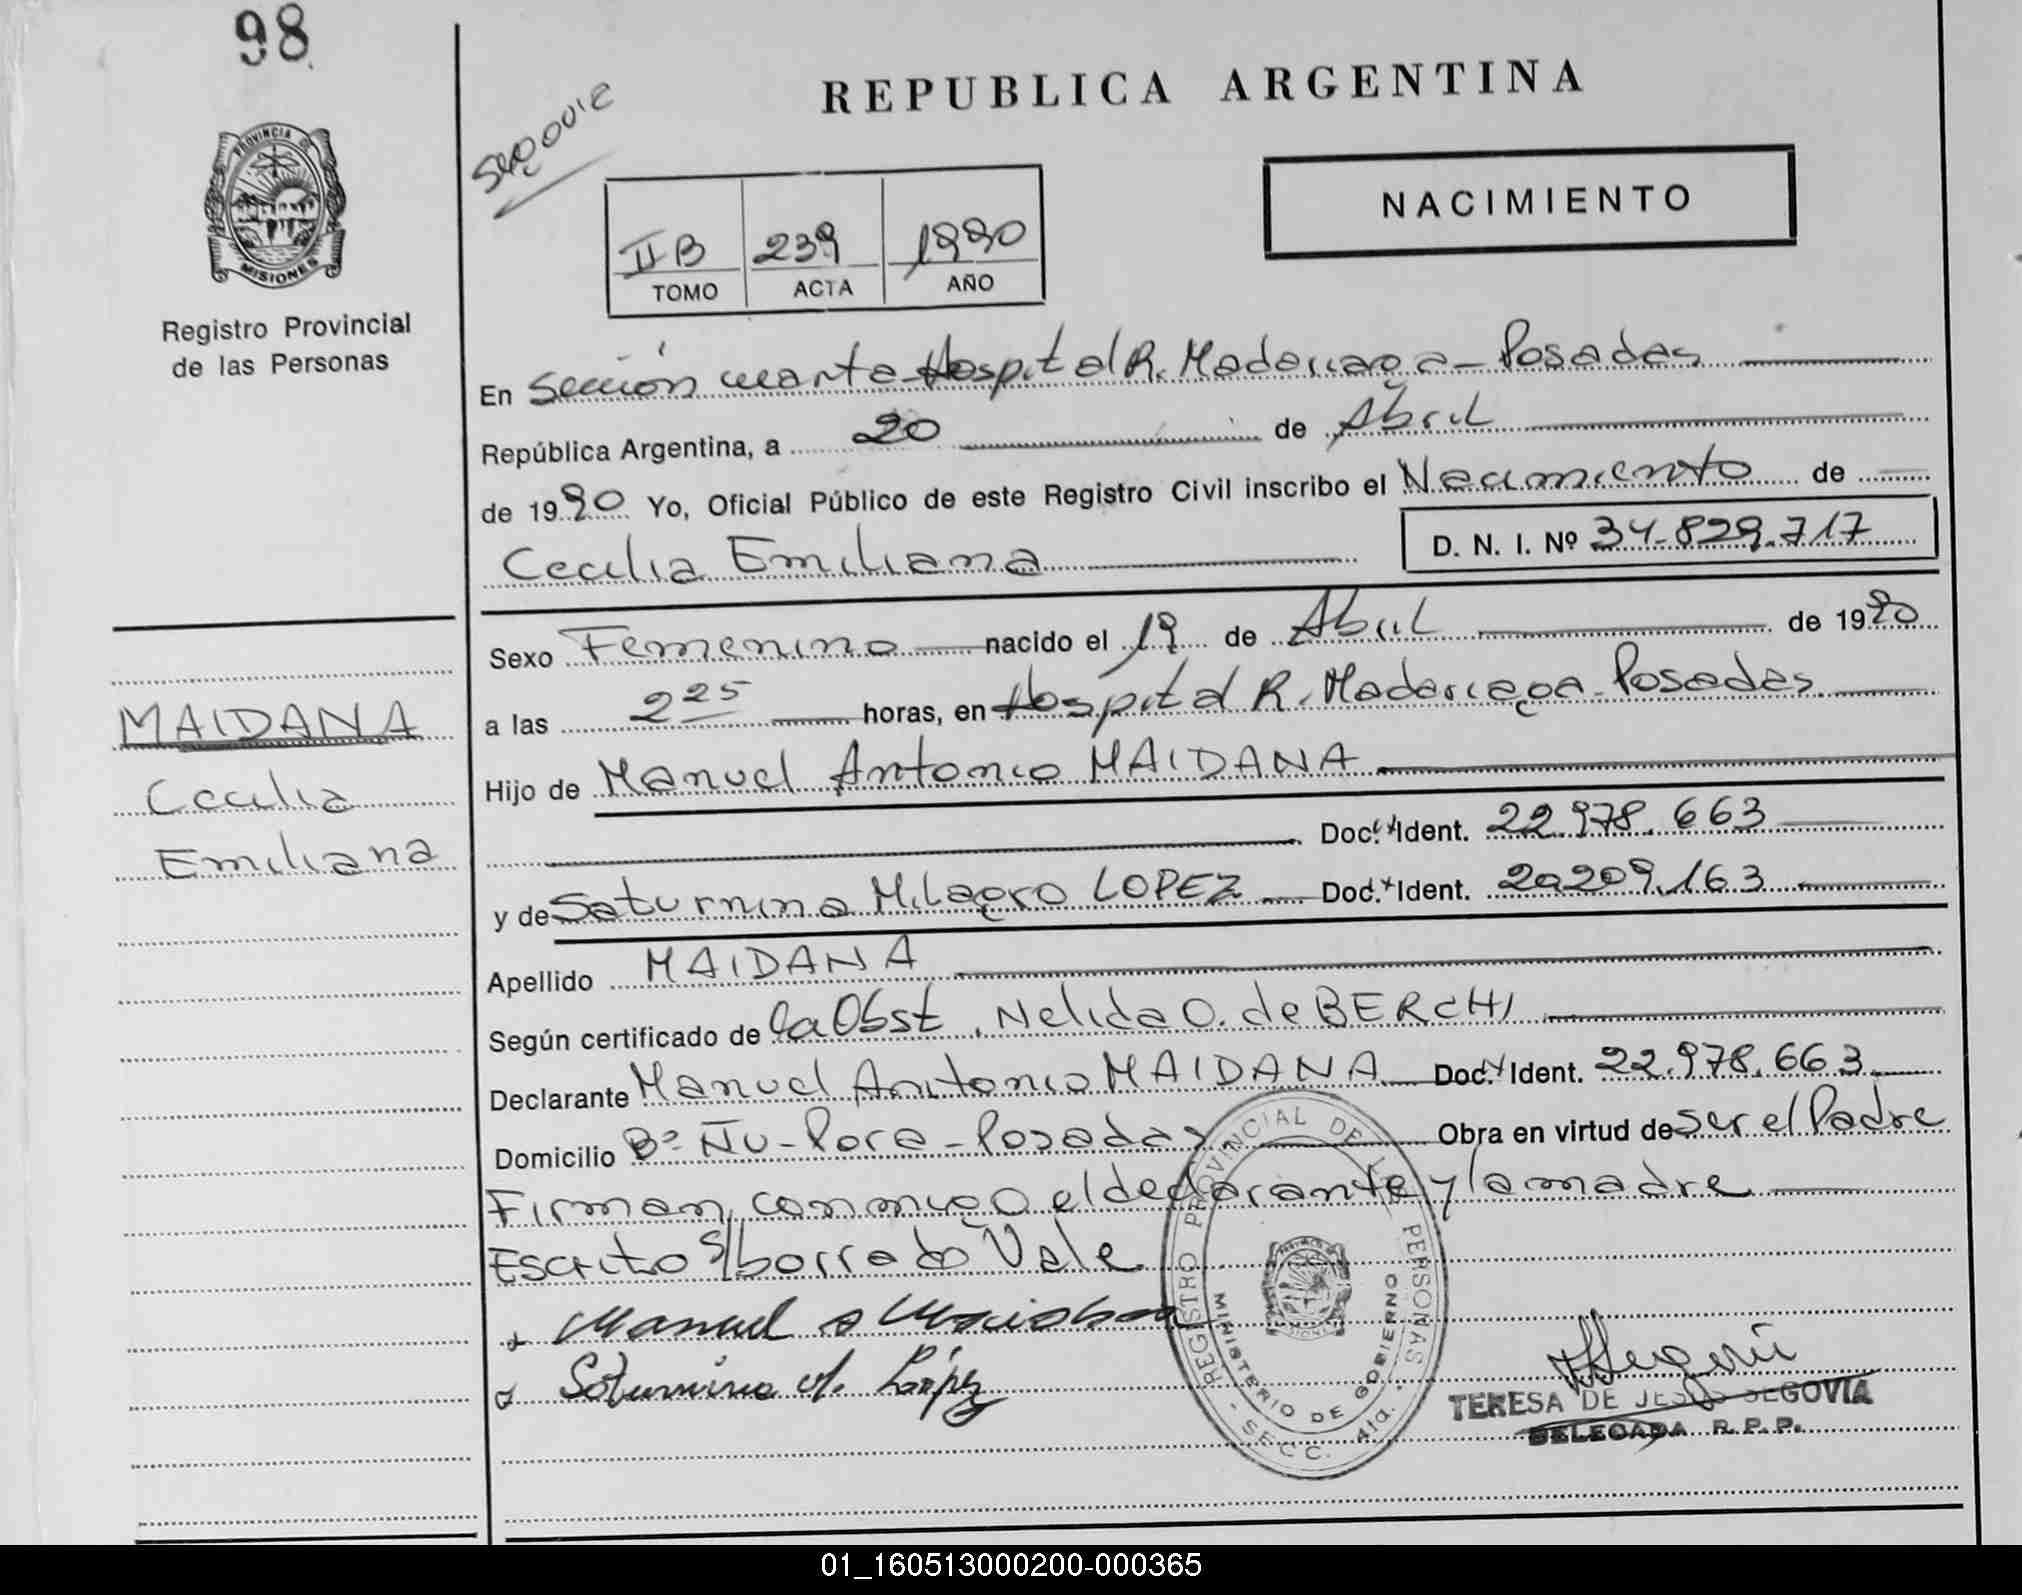 98
Segovia
REPUBLICA ARGENTINA
PROVINCIA DE
MISIONES
Registro Provincial
de las Personas
NACIMIENTO
II B 239 1990
TOMO ACTA AÑO
En Sección cuarta-Hospital R. Madariaga - Posadas
República Argentina, a 20 de Abril
de 1990 Yo, Oficial Público de este Registro Civil inscribo el Nacimiento de
Cecilia Emiliana D. N. I. Nº 34.829.717
Sexo Femenino nacido el 19 de Abril de 1990
a las 2 25 horas, en Hospital R. Madariaga - Posadas
Hijo de Manuel Antonio MAIDANA
Doc. Ident. 22.978.663
y de Saturnina Milagro LOPEZ Doc. Ident. 20.209.163
Apellido MAIDANA
Según certificado de la Obst. Nelida O. de BERCHI
Declarante Manuel Antonio MAIDANA Doc. Ident. 22.978.663
Domicilio Bº Ñu-Pora-Posadas Obra en virtud de ser el Padre
Firman conmigo el declarante y la madre
Escrito s/borrado Vale
Manuel A Maidana
Saturnina M. López
MAIDANA
Cecilia
Emiliana
REGISTRO PROVINCIAL DE LAS PERSONAS
MINISTERIO DE GOBIERNO
- SECC. 4ta. -
MISIONES
TERESA DE JESUS SEGOVIA
DELEGADA R.P.P.
01_160513000200-000365